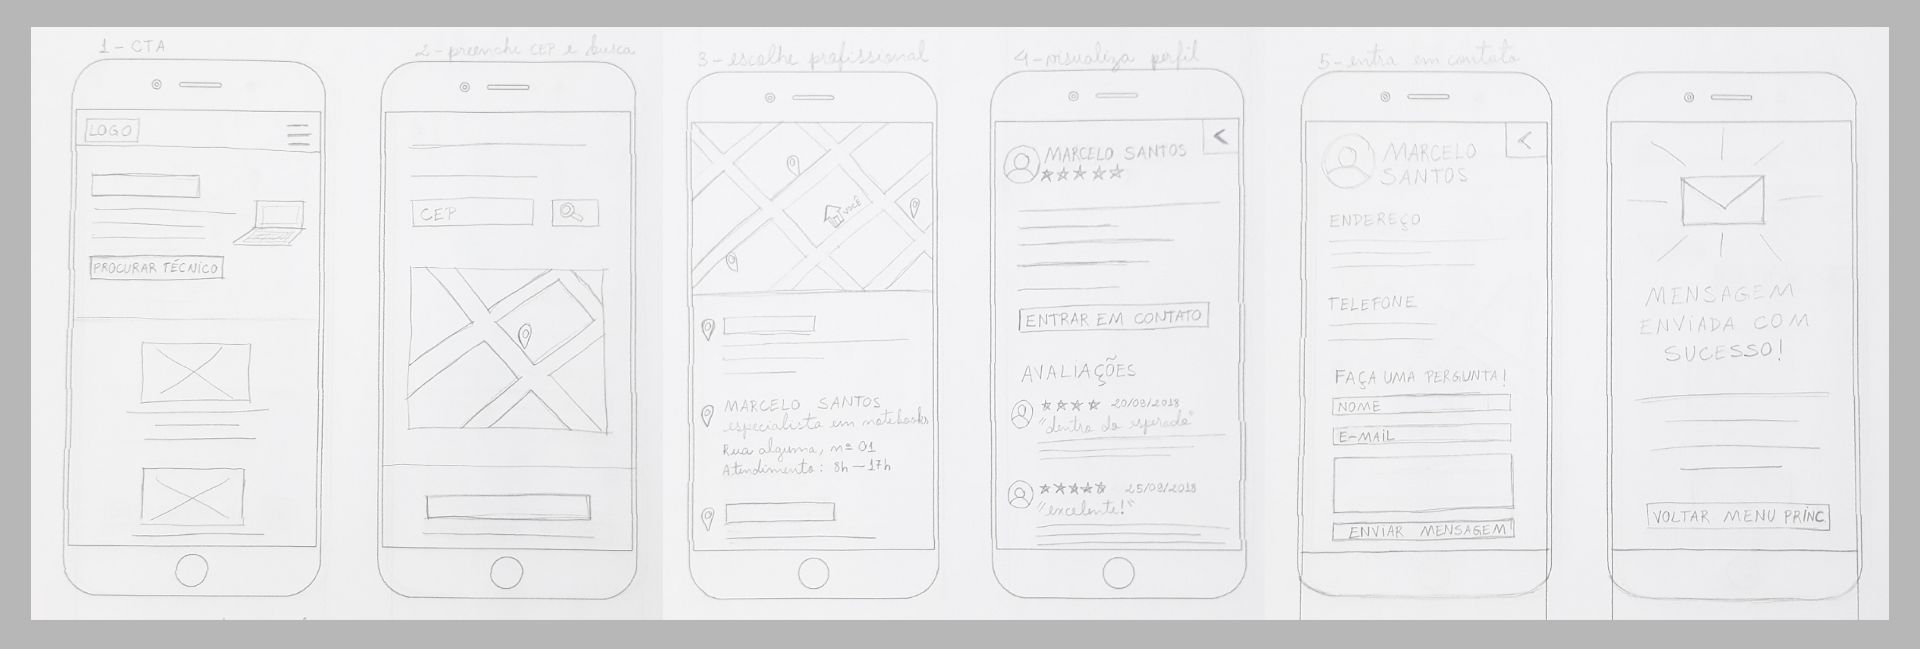 1- CTA
LOGO
PROCURAR TÉCNICO
2- preenche CEP e busca
CEP
3- escolhe profissional
VOCÊ
MARCELO SANTOS
especialista em notebooks
Rua alguma, nº 01
Atendimento: 8h — 17h
4- visualiza perfil
<
MARCELO SANTOS
ENTRAR EM CONTATO
AVALIAÇÕES
20/08/2018
"dentro do esperado"
25/08/2018
"excelente!"
5- entra em contato
<
MARCELO
SANTOS
ENDEREÇO
TELEFONE
FAÇA UMA PERGUNTA!
NOME
E-MAIL
ENVIAR MENSAGEM
MENSAGEM
ENVIADA COM
SUCESSO!
VOLTAR MENU PRINC.